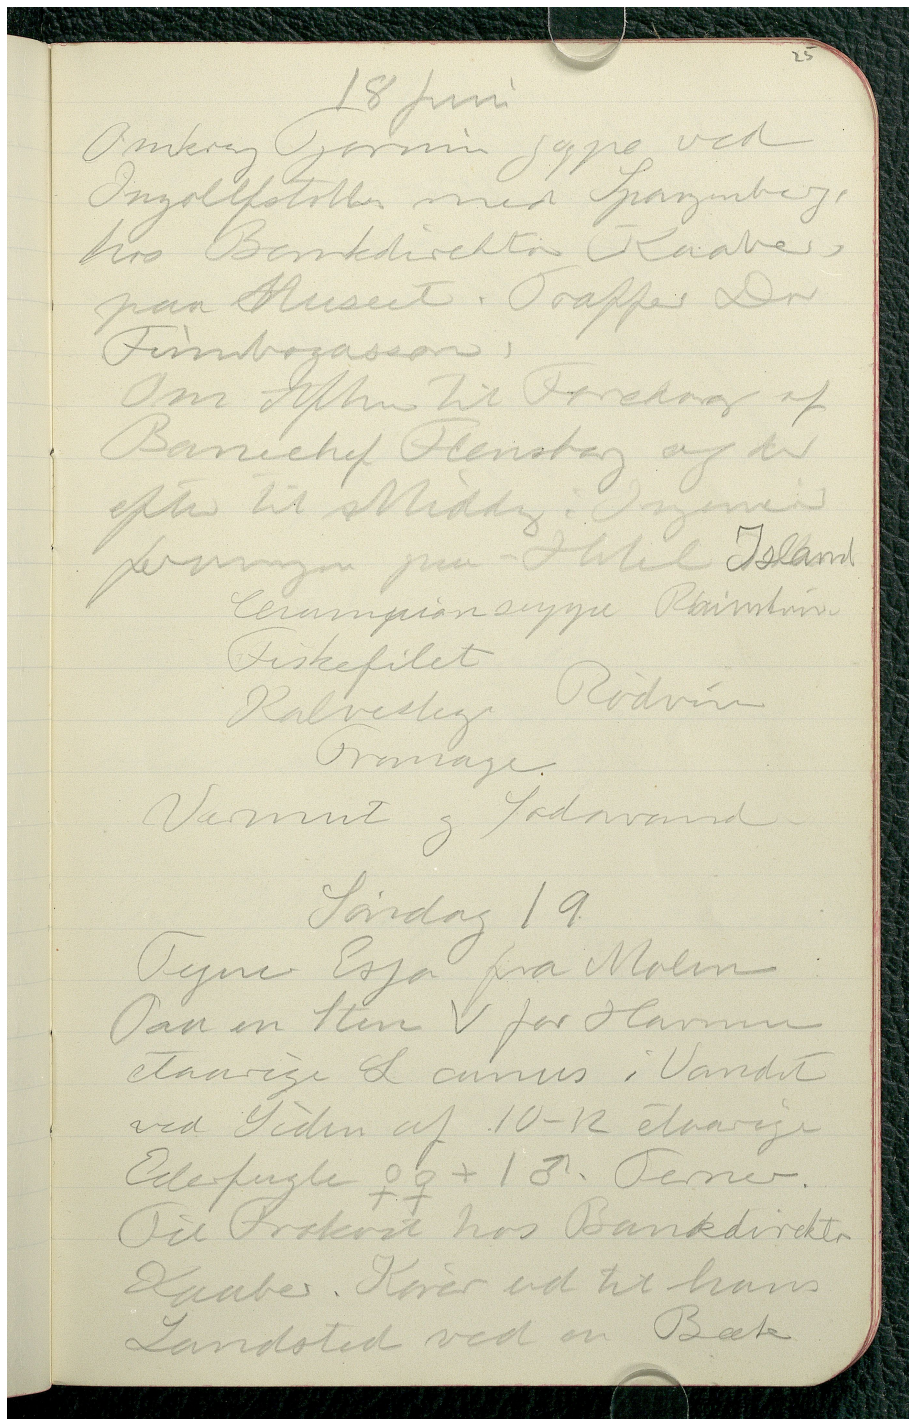 25
18 Juni
Omkring Tjornin oppe ved
Ingolfstotten med Spangenberg,
hos Bankdirektor Kaaber,
paa Museet. Traffer Dr
Finnbogasson.
Om Aften til Foredrag af
Banechef Flensborg og der
efter til Middag i Ingenieur
foreningen paa Hotel Island
Championsuppe Rhinskvin
Fiskefilet
Kalvesteg Rødvin
Fromage
Vermut og Sodavand
Søndag 19
Tegner Esja fra Molen
Paa en Sten V for Havnen
etaarige L canus i Vandet
ved Siden af 10-12 etaarige
Ederfugle ♀♀ + 1 ♂. Terner.
Til Frokost hos Bankdirektør
Kaaber. Kører ud til hans
Landsted ved en Bæk